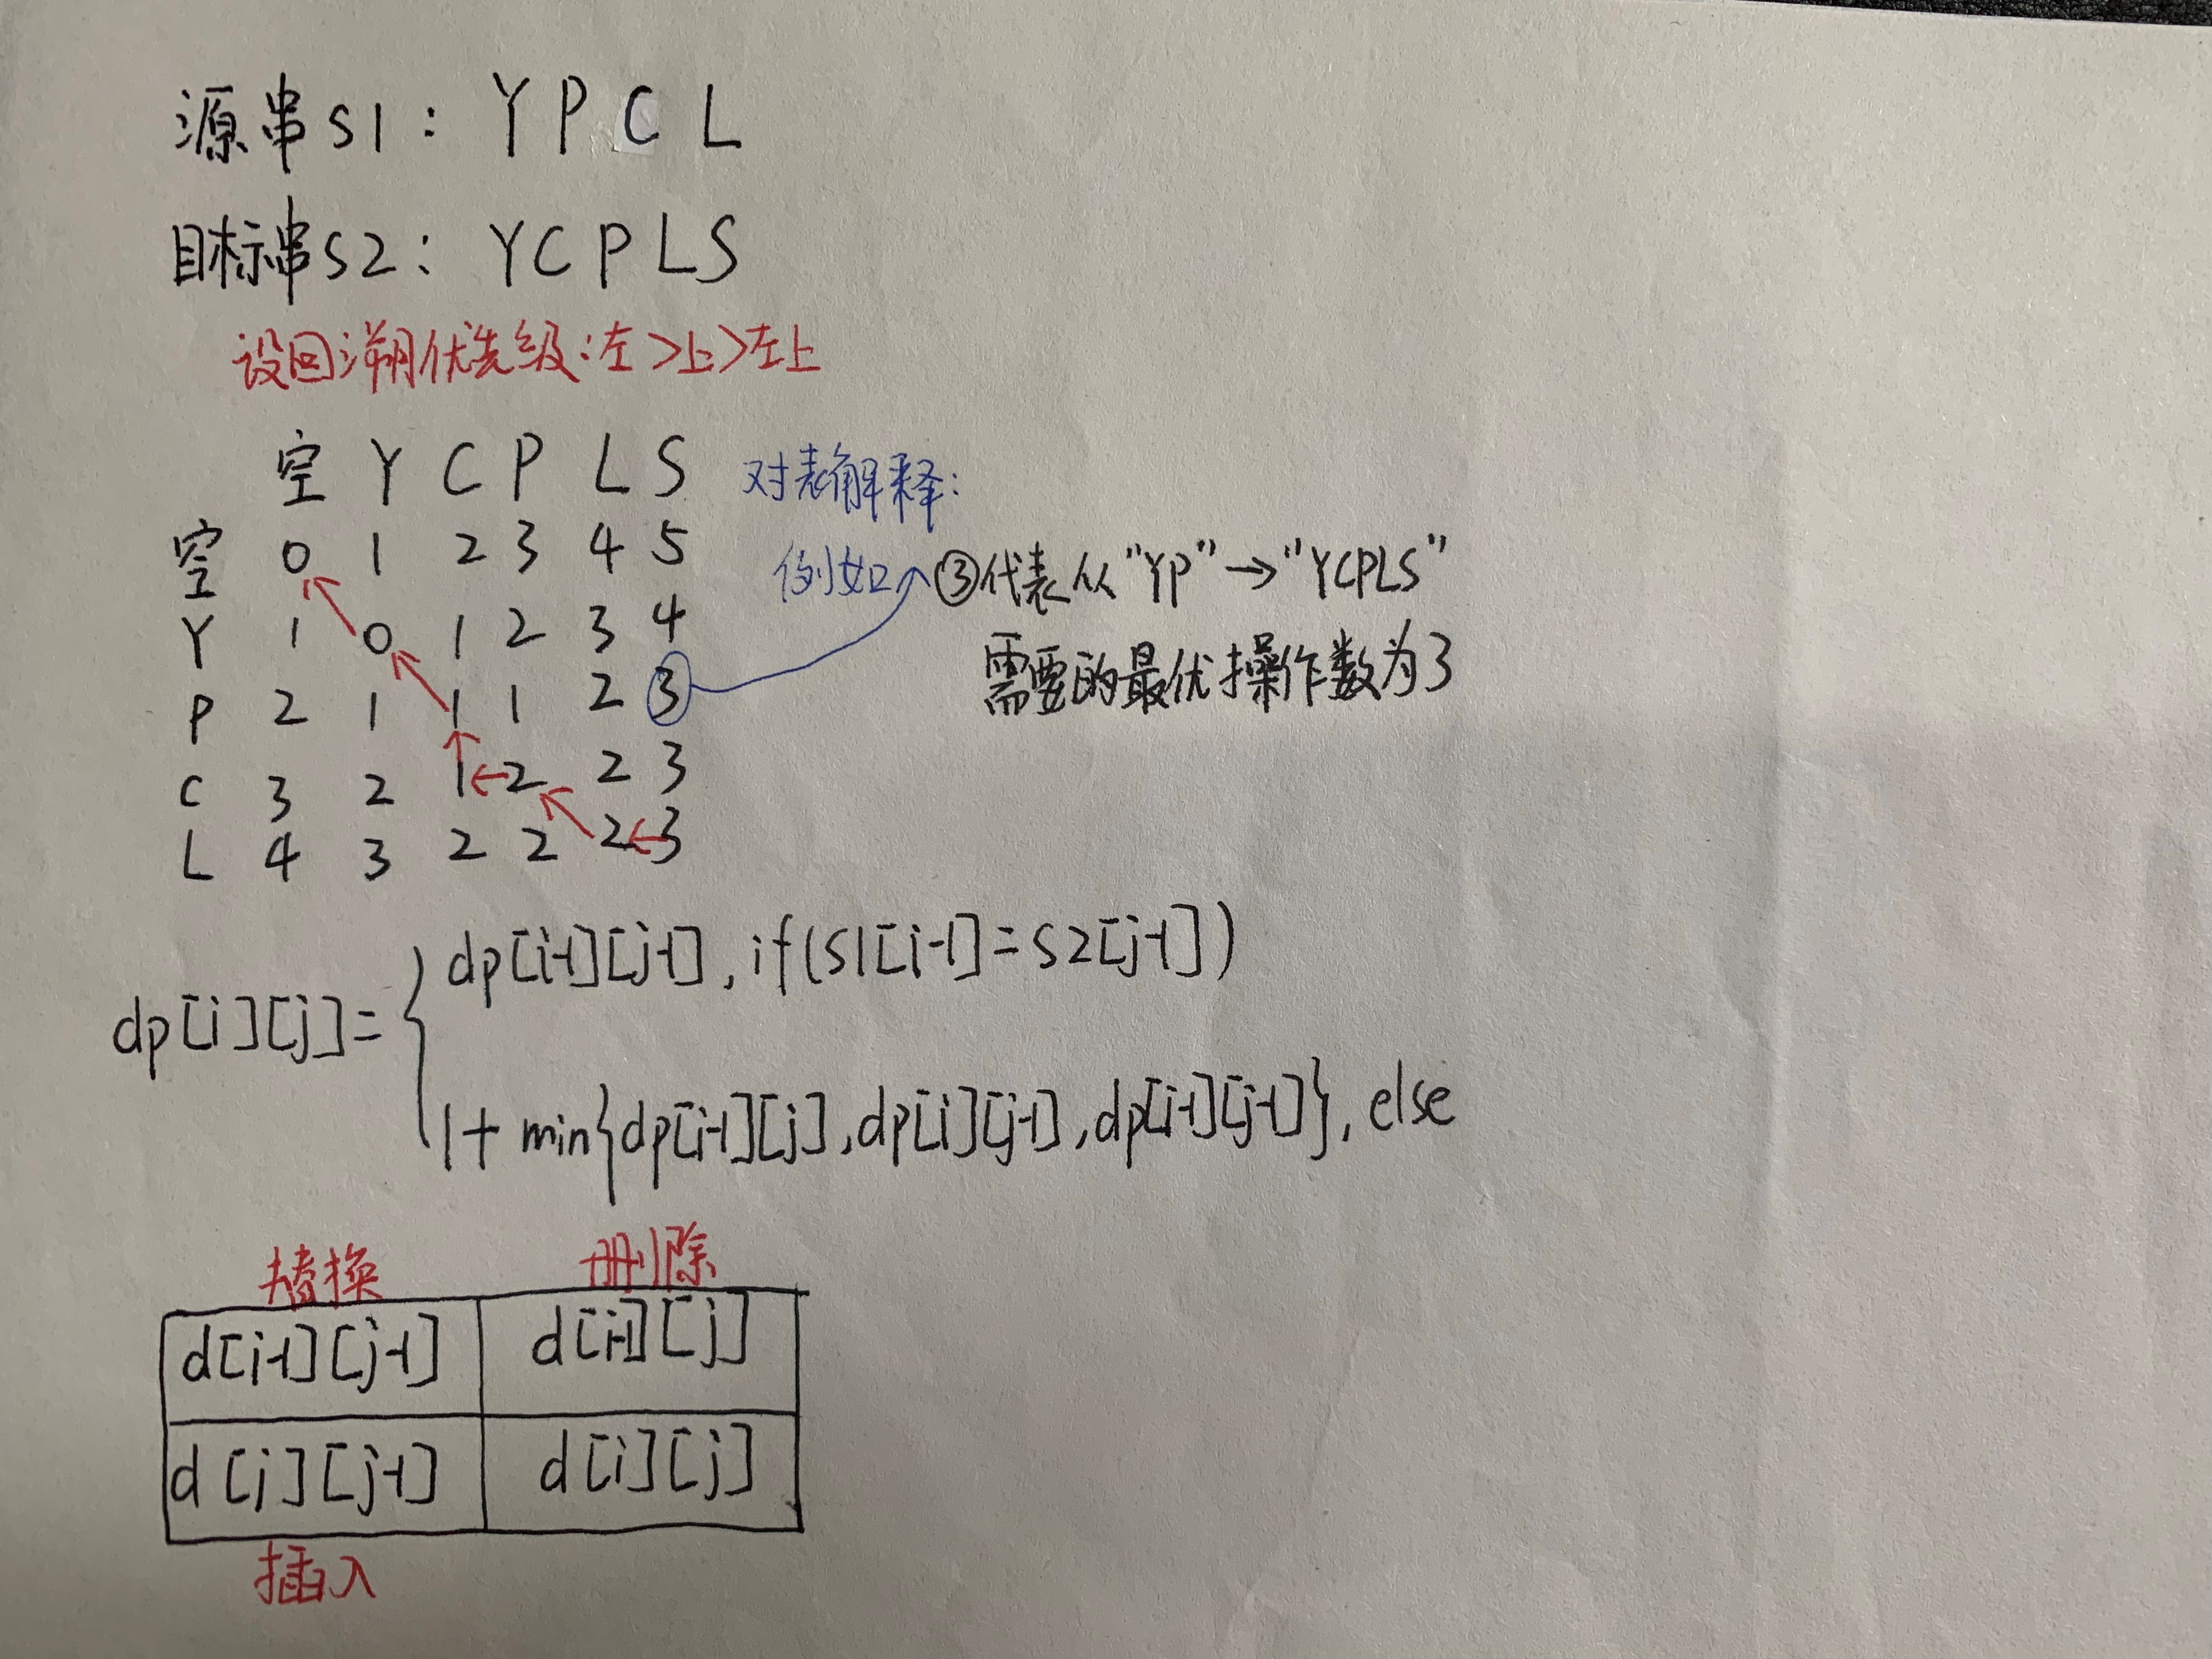 源串S1: YPCL
目标串S2: YCPLS
设回溯优先级:左>上>左上
空 Y C P L S
空 0 1 2 3 4 5
Y 1 0 1 2 3 4
P 2 1 1 1 2 3
C 3 2 1 2 2 3
L 4 3 2 2 2 3
对表解释:
例如 ③代表从"YP"→"YCPLS"
需要的最优操作数为3
dp[i][j]={
dp[i-1][j-1], if(S1[i-1]=S2[j-1])
1+min{dp[i-1][j],dp[i][j-1],dp[i-1][j-1]}, else
替换 删除
d[i-1][j-1] d[i-1][j]
d[i][j-1] d[i][j]
插入